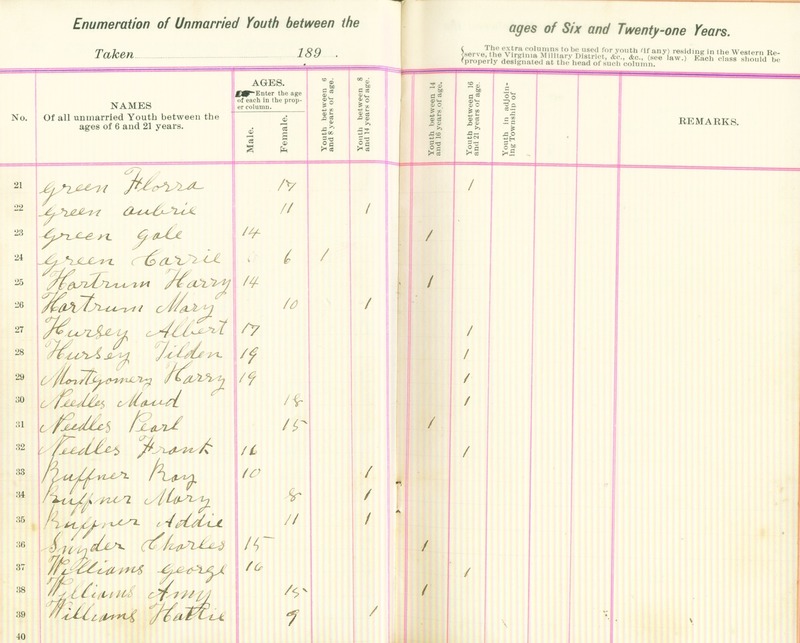 Enumeration of Unmarried Youth between the ages of Six and Twenty-one Years.
Taken 189 .
The extra columns to be used for youth (if any) residing in the Western Re-
serve, the Virginia Military District, &c., &c., (see law.) Each class should be
properly designated at the head of such column.
No.
NAMES
Of all unmarried Youth between the
ages of 6 and 21 years.
AGES.
Enter the age
of each in the prop-
er column.
Male.
Female.
Youth between 6
and 8 years of age.
Youth between 8
and 14 years of age.
Youth between 14
and 16 years of age.
Youth between 16
and 21 years of age.
Youth in adjoin-
ing Township of
REMARKS.
21 Green Florra 17 1
22 Green Aubrie 11 1
23 Green Gale 14 1
24 Green Carrie 6 1
25 Hartrum Harry 14 1
26 Hartrum Mary 10 1
27 Hursey Albert 17 1
28 Hursey Tilden 19 1
29 Montgomery Harry 19 1
30 Needles Maud 18 1
31 Needles Pearl 15 1
32 Needles Frank 16 1
33 Ruffner Ray 10 1
34 Ruffner Mary 8 1
35 Ruffner Addie 11 1
36 Snyder Charles 15 1
37 Williams George 16 1
38 Williams Amy 15 1
39 Williams Hattie 9 1
40